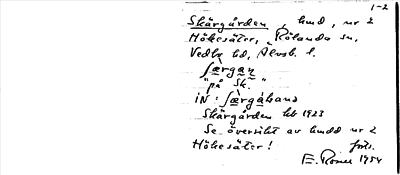 1-2
Skärgården, hmd, nr 2
Höhesäter, Rölanda sn,
Vedbo hd, Älvsb. l.
ʃærgan
"på Sk."
iN: ʃærgåhans
Skärgården hb 1923
Se översikt av hmdd nr 2
Höhesäter! forts.
E. Rosell 1954